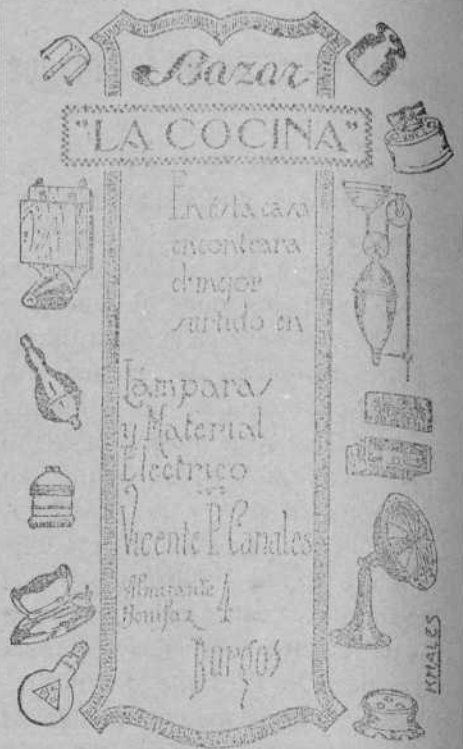 Bazar
"LA COCINA"
En ésta casa
encontrara
el mejor
surtido en
Lámparas
y Material
Electrico
Vicente P. Canales
Almirante
Bonifaz 4
Burgos
KHALES